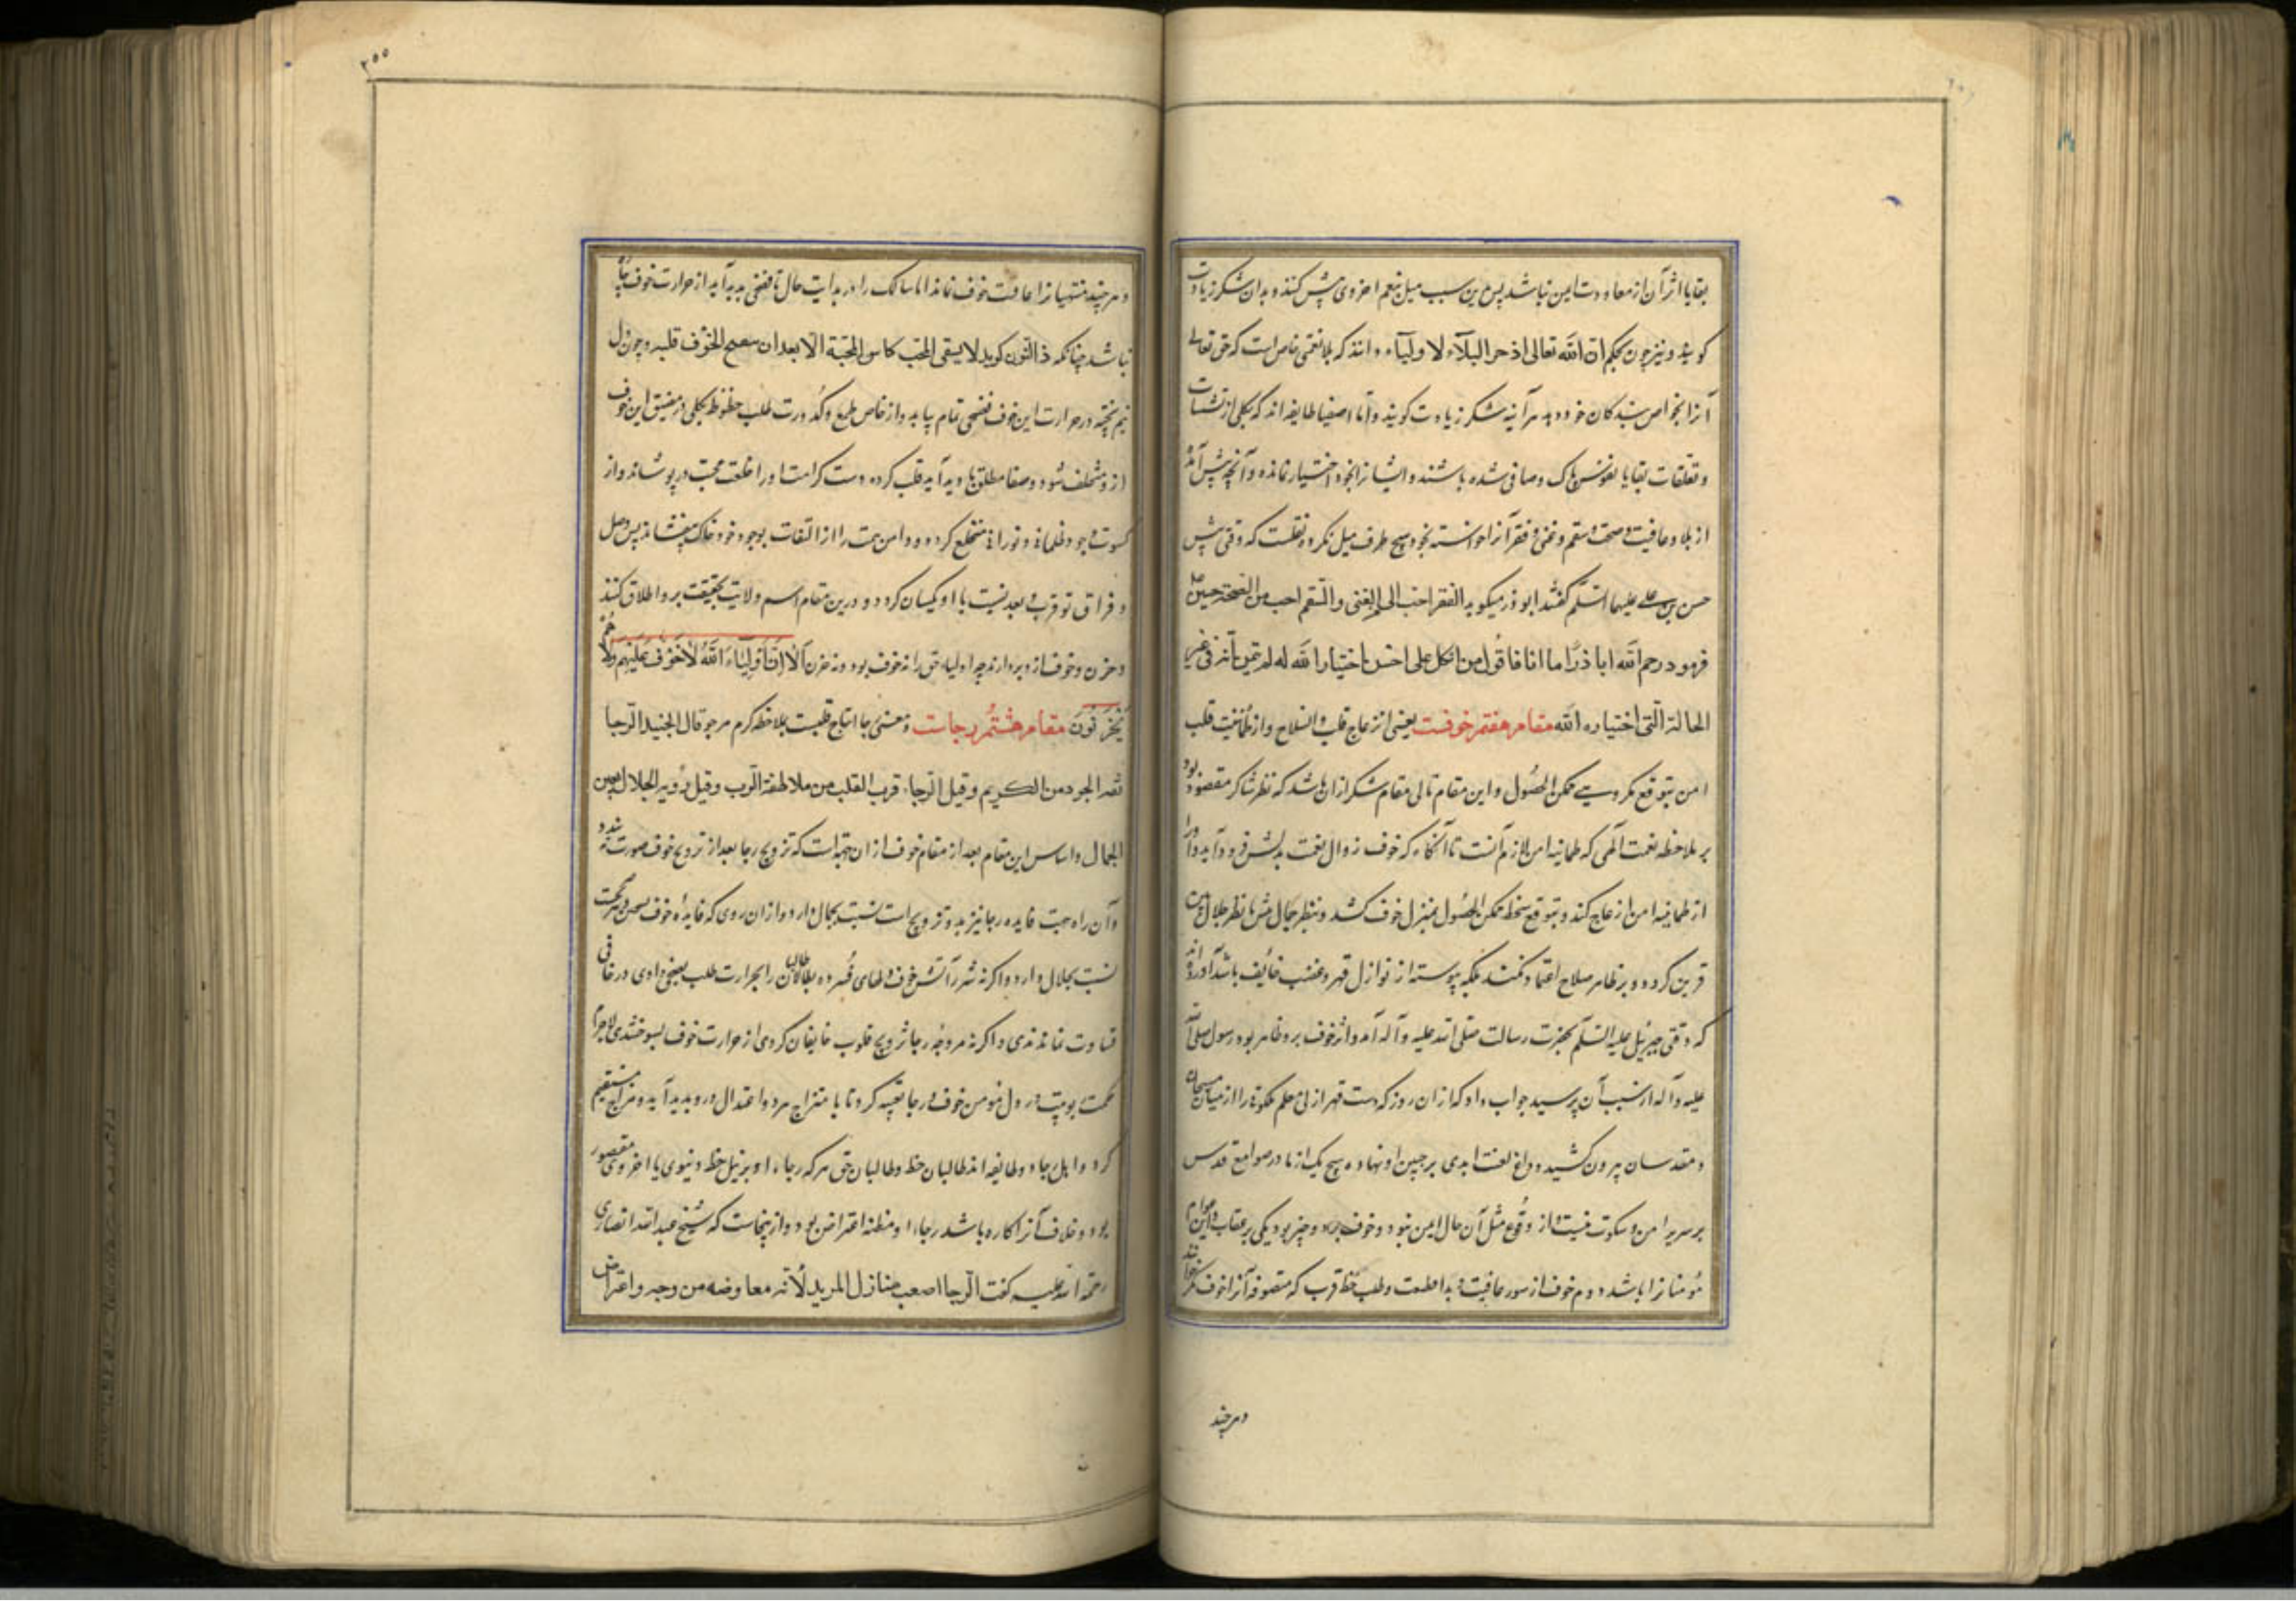 بقایا اثر آن از معاودت ایمن نباشد پس بدین سبب میل بنعم اخروی پیش کنند و بدان شکر زیادت
کویند و نیز چون بحکم ان الله تعالی اذخر البلآء لاولیآء دانند که بلا نعمتی خاص است که حق تعالی
آنرا بخواص بندکان خود دهد هر آینه شکر زیادت کویند و اما اصفیا طایفه اند که بکلی از تشبثات
و تعلقات بقایا نفوس پاک و صافی شده باشند و ایشانرا بخود اختیار نمانده و آنچه پیش آید
از بلا و عافیت و صحت و سقم و غنی و فقر آنرا خواسته بخود هیچ طرف میل نکرده نقلست که وقتی پیش
حسن بن علی علیهما السلم کفتند ابوذر میکوید الفقر احب الی من الغنی و السقم احب من الصحة حسین
فرمود رحم الله اباذرّا اما انا فاقول من اتکل علی احسن اختیار الله له لم یتمن انه فی غیر
الحالة التی اختیاره الله مقام هفتم خوفست یعنی انزعاج قلب و انسلاخ او از طمانینت قلب
امن بتوقع مکروهی ممکن الحصول و این مقام تالی مقام شکر ازان باشد که نظر شاکر مقصور بود
بر ملاحظه نعمت الهی که طمانینه امن لازم آنست تا آنکاه که خوف زوال نعمت بدلش فرود آید و او را
از طمانینه امن ازعاج کند و بتوقع سخط ممکن الحصول بمنزل خوف کشد و بنظر جمال مشاهد نظر جلال
قرین کردد و بر ظاهر صلاح اعتماد نکند بلکه پیوسته از نوازل قهر و غضب خائف باشد آورده اند
که وقتی جبرئیل علیه السلم بحضرت رسالت صلی الله علیه و آله آمد و اثر خوف برو ظاهر بود رسول صلی الله
علیه و آله از سبب آن پرسید جواب داد که ازان روز که دست قهر ازلی معلم ملکوت را از میان مسبحان
و مقدسان بیرون کشید و داغ لعنت ابدی بر جبین او نهاد هیچ یک از ما در صوامع قدس
بر سریر امن و سکوت نیست و از وقوع مثل آن حال ایمن نبود و خوف بر دو چیز بود یکی بر عقاب و این عوام
مؤمنانرا باشد دوم خوف از سوء عاقبت و طلب حظ قرب که متصوفه آنرا خوف مکر خوانند
و هر چند
٢٥٥
و هر چند منتهیانرا عاقبت خوف نماند اما سالک را در بدایت حال تا نضجی پدید آید از حرارت خوف چاره
نباشد چنانکه ذالنون کوید لا یسقی المحب کاس المحبّة الّا بعد ان ینضج الخوف قلبه و چون دل
نیم پخته در حرارت این خوف نضجی تمام بیابد و از خاص طمع و کدورت طلب حظوظ بکلی در مضیق این خوف
ازو متخلف شود و صفا مطلق پدید آید قلب کرده دست کرامت او را خلعت محبت در پوشاند و از
کسوت وجود ظلمانی و نورانی منخلع کردد و دامن همت را از التفات بوجود خود خاک بیفشاند پس وصل
و فراق تو قرب و بعد نسبت با او یکسان کردد و درین مقام اسم ولایت بحقیقت برو اطلاق کنند
و حزن و خوف ازو بردارند چه اولیاء حق را نه خوف بود و نه حزن اَلا اِنَّ اَوْلِیَاءَ اللّهِ لا خَوْفٌ عَلَیْهِم وَلا هُمْ
یَحْزَنُونَ مقام هشتم رجاست و معنی رجا ارتیاح قلبست بملاحظه کرم مرجو قال الجنید الرجا
ثقة الجود من الکریم و قیل الرجاء قرب القلب من ملاطفة الرب و قیل رؤیة الجلال بعین
الجمال و اساس این مقام بعد از مقام خوف ازان جهت است که ترویح رجا بعد از ترویح خوف صورت بندد
و آن راه حبت فایده رجا نیز برد و ترویح است نسبت بجمال دارد و ازان روی که فایده خوف سخن و حرکت
نسبت بجلال دارد و اکر نه شرر آتش خوف دلهای فسرده بطالان طالبان را بحرارت طلب بضج دادی در غافی
قساوت نماندندی و اکر نه مروحه رجا ترویح قلوب خایفان کردی از حرارت خوف بسوختندی لاجرم
حکمت ربوبیت در دل مؤمن خوف و رجا تعبیه کرد تا بامتزاج هردو اعتدال درو پدید آید و مزاج مستقیم
کردد و اهل رجا دو طایفه اند طالبان حظ و طالبان حق هر که رجاء او بر نیل حظ دنیوی یا اخروی مقصور
بود و خلاف آنرا کاره باشد رجاء او مظنه اعتراض بود و از ینجاست که شیخ عبدالله انصاری
رحمة الله علیه کفت الرجا اصعب منازل المرید لأنه معاوضه من وجه و اعتراض